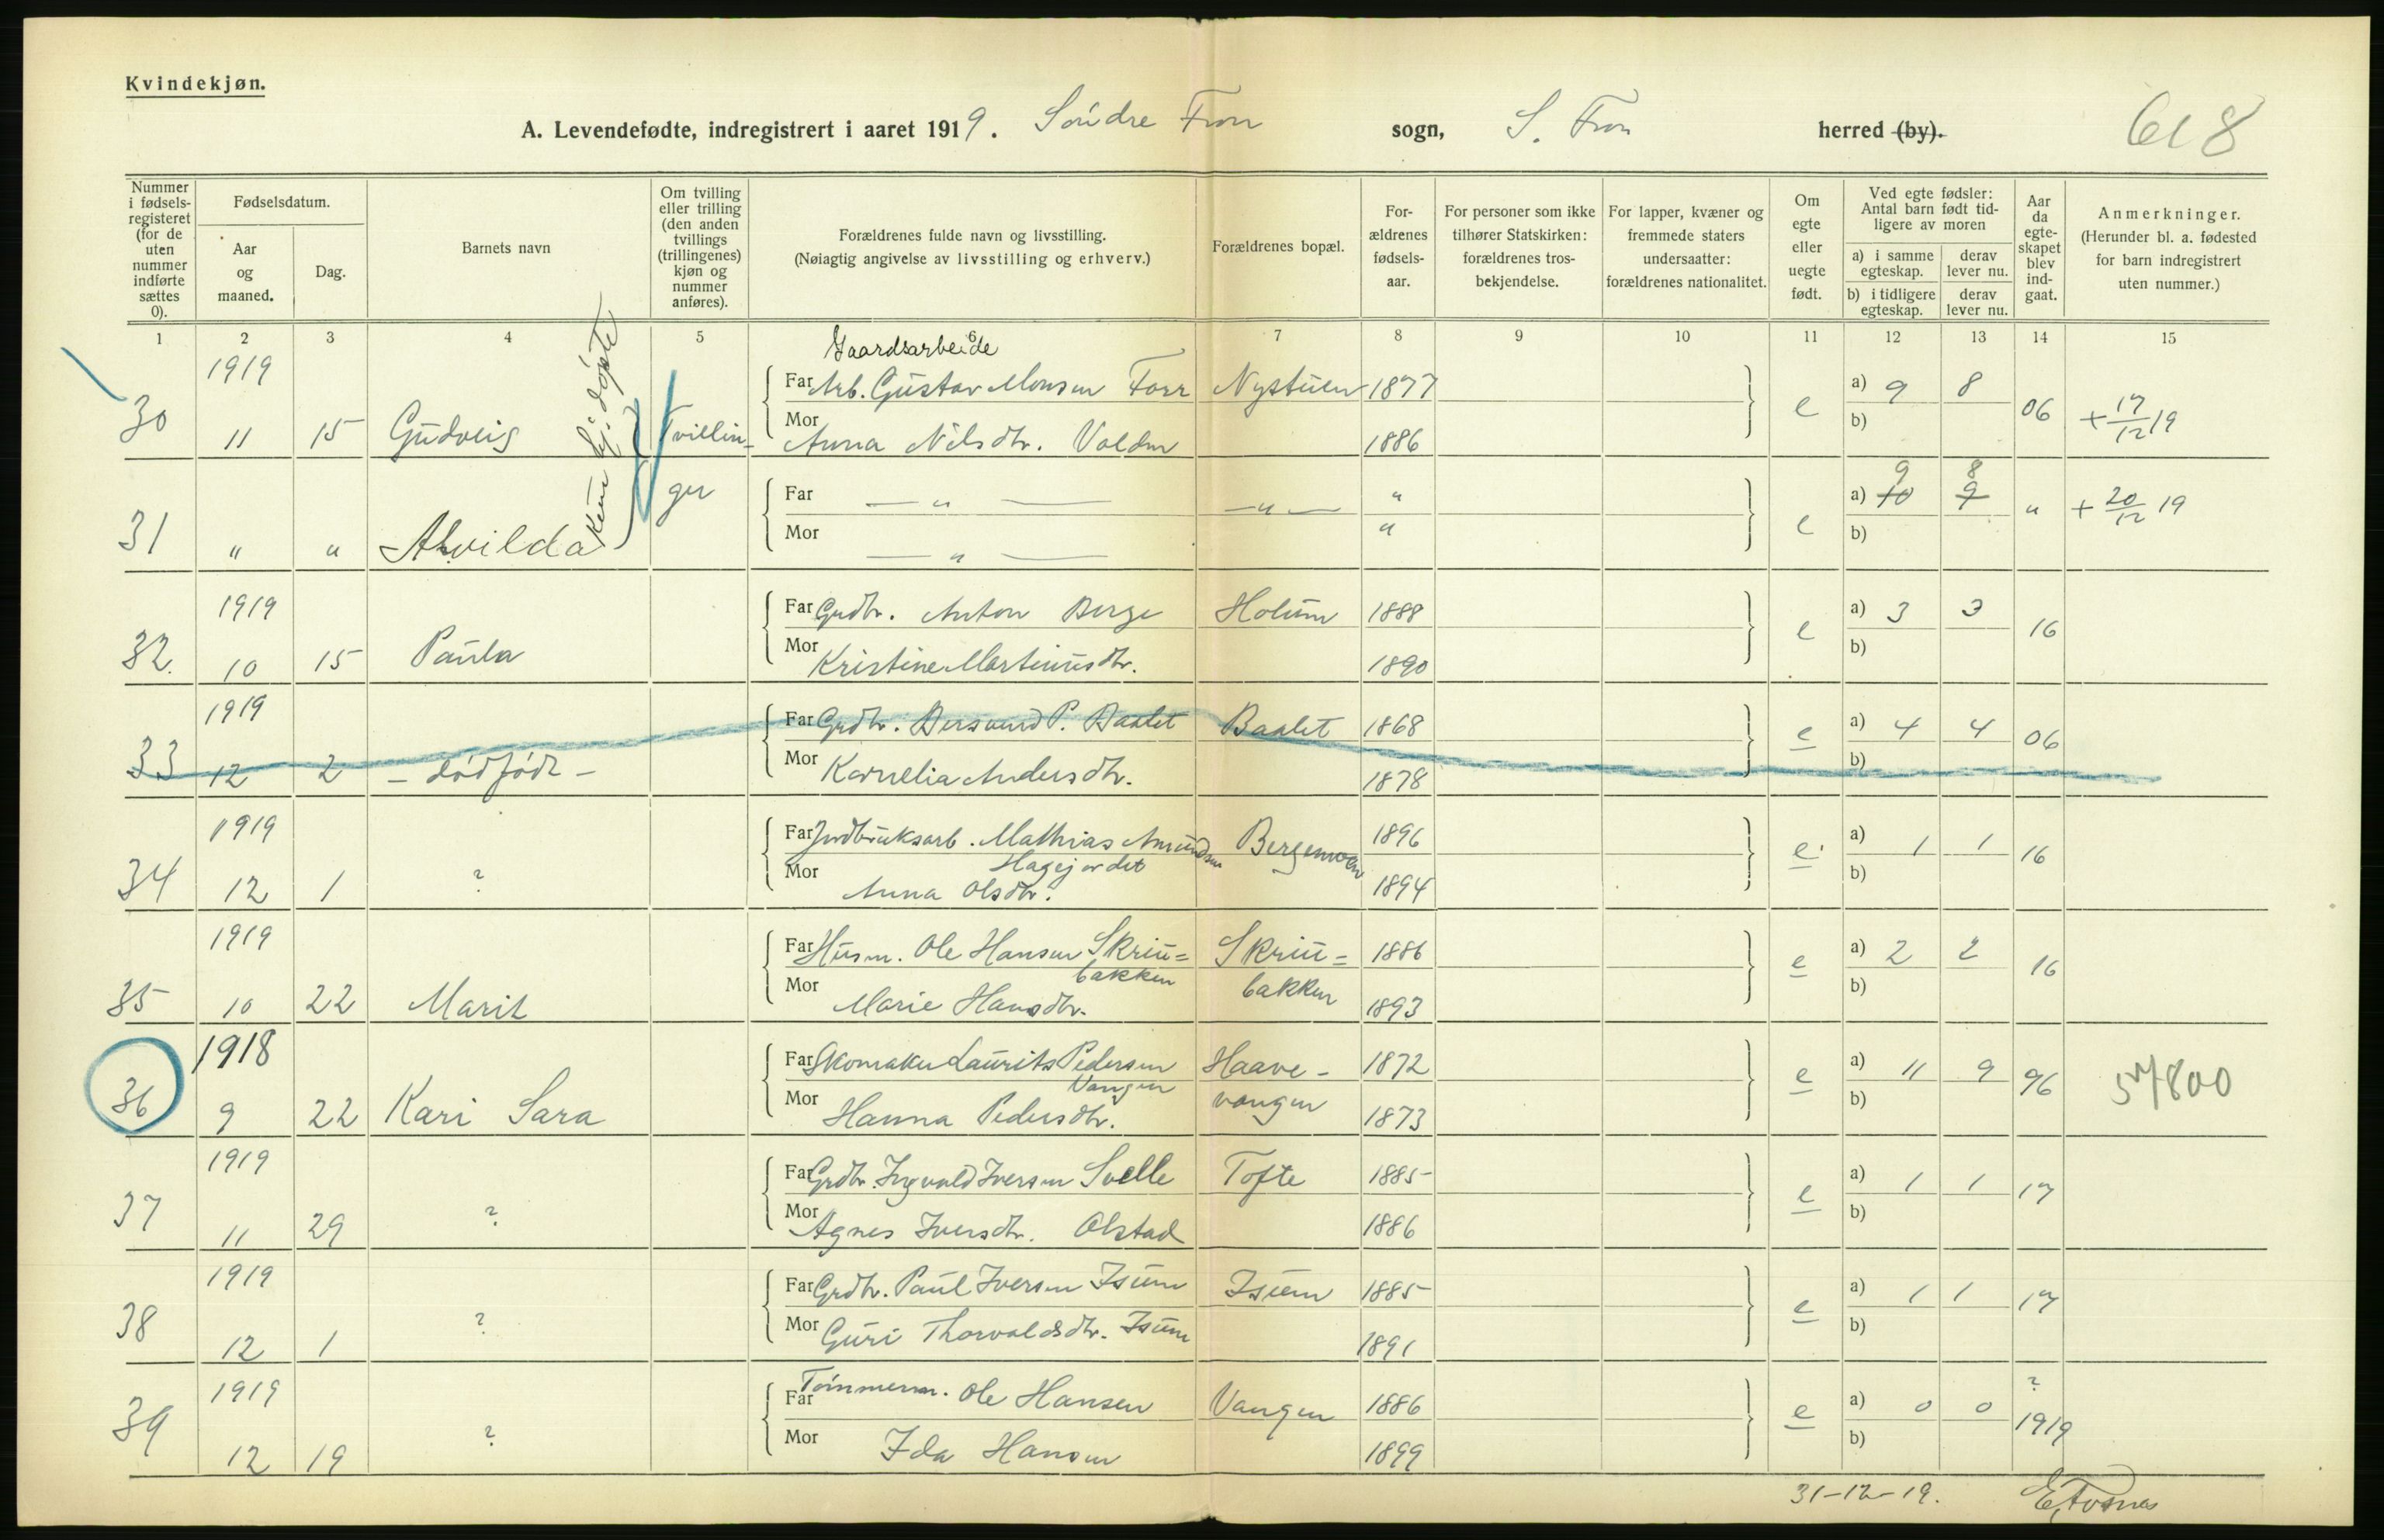 Kvindekjøn.
A. Levendefødte, indregistrert i aaret 1919. Söndre Fron sogn, S. Fron herred (by).
618
Nummer i fødsels-registeret (for de uten nummer indførte sættes 0).
Fødselsdatum.
Aar og maaned.
Dag.
Barnets navn
Om tvilling eller trilling (den anden tvillings (trillingenes) kjøn og nummer anføres).
Forældrenes fulde navn og livsstilling.
(Nøiagtig angivelse av livsstilling og erhverv.)
Forældrenes bopæl.
For-ældrenes fødsels-aar.
For personer som ikke tilhører Statskirken: forældrenes tros-bekjendelse.
For lapper, kvæner og fremmede staters undersaatter: forældrenes nationalitet.
Om egte eller uegte født.
Ved egte fødsler: Antal barn født tid-ligere av moren
a) i samme egteskap. derav lever nu.
b) i tidligere egteskap. derav lever nu.
Aar da egte-skapet blev ind-gaat.
Anmerkninger.
(Herunder bl. a. fødested for barn indregistrert uten nummer.)
1 2 3 4 5 6 7 8 9 10 11 12 13 14 15
Gaardsarbeide
30 1919 11 15 Gudveig Tvillin- Far Arb. Gustav Monsen Nystuen 1877 e a) 9 8 06 + 17/12 19
Mor Anna Nilsdtr. 1886 b)
31 " " Alvilda ger Far — " — — " — " e a) 9 10 8 9 " + 20/12 19
Mor — " — " b)
32. 1919 10 15 Paula Far Grdbr. Anton Berge Holum 1888 e a) 3 3 16
Mor Kristine Martinusdtr. 1890 b)
33 1919 12 2 - dödfödt - Far Grdbr. P. Baalet Baalet 1868 e a) 4 4 06
Mor Kornelia Andersdtr. 1878 b)
34 1919 12 1 ? Far Jordbruksarb. Mathias Amundsen Hagejordet Bergemoen 1896 e a) 1 1 16
Mor Anna Olsdtr. 1894 b)
35 1919 10 22 Marit Far Husm. Ole Hansen Skriu=bakken Skriu=bakken 1886 e a) 2 2 16
Mor Marie Hansdtr. 1893 b)
36 1918 9 22 Kari Sara Far Skomaker Laurits Pedersen Vangen Haave-vangen 1872 e a) 11 9 96
Mor Hanna Pedersdtr. 1873 b)
37 1919 11 29 ? Far Grdbr. Ingvald Iversen Svelle Tofte 1885 e a) 1 1 17
Mor Agnes Iversdtr. Olstad 1886 b)
38 1919 12 1 ? Far Grdbr. Paul Iversen Isum Isum 1885 e a) 1 1 17
Mor Guri Thorvaldsdtr. Isum 1891 b)
39 1919 12 19 ? Far Tömmerm. Ole Hansen Vangen 1886 e a) 0 0 ? 1919
Mor Ida Hansen 1899 b)
31-12-19.